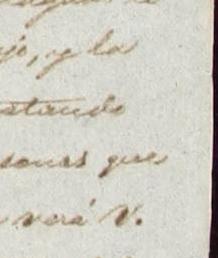 jo, y la
estando
sonas que
verá V.